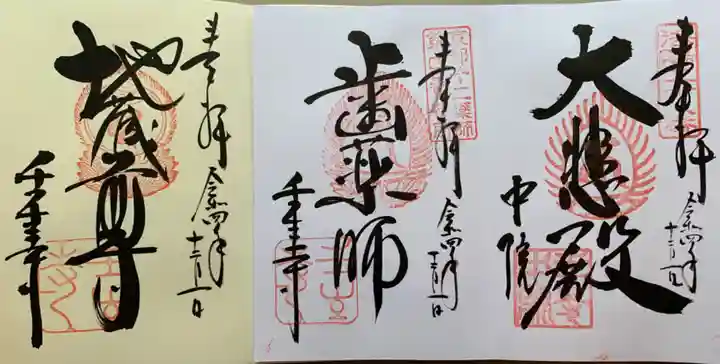 奉拝
令和四年
十二月一日
大悲殿
中院
奉拝
令和四年
十二月一日
歯薬師
壬生寺
奉拝
令和四年
十二月一日
地蔵尊
壬生寺